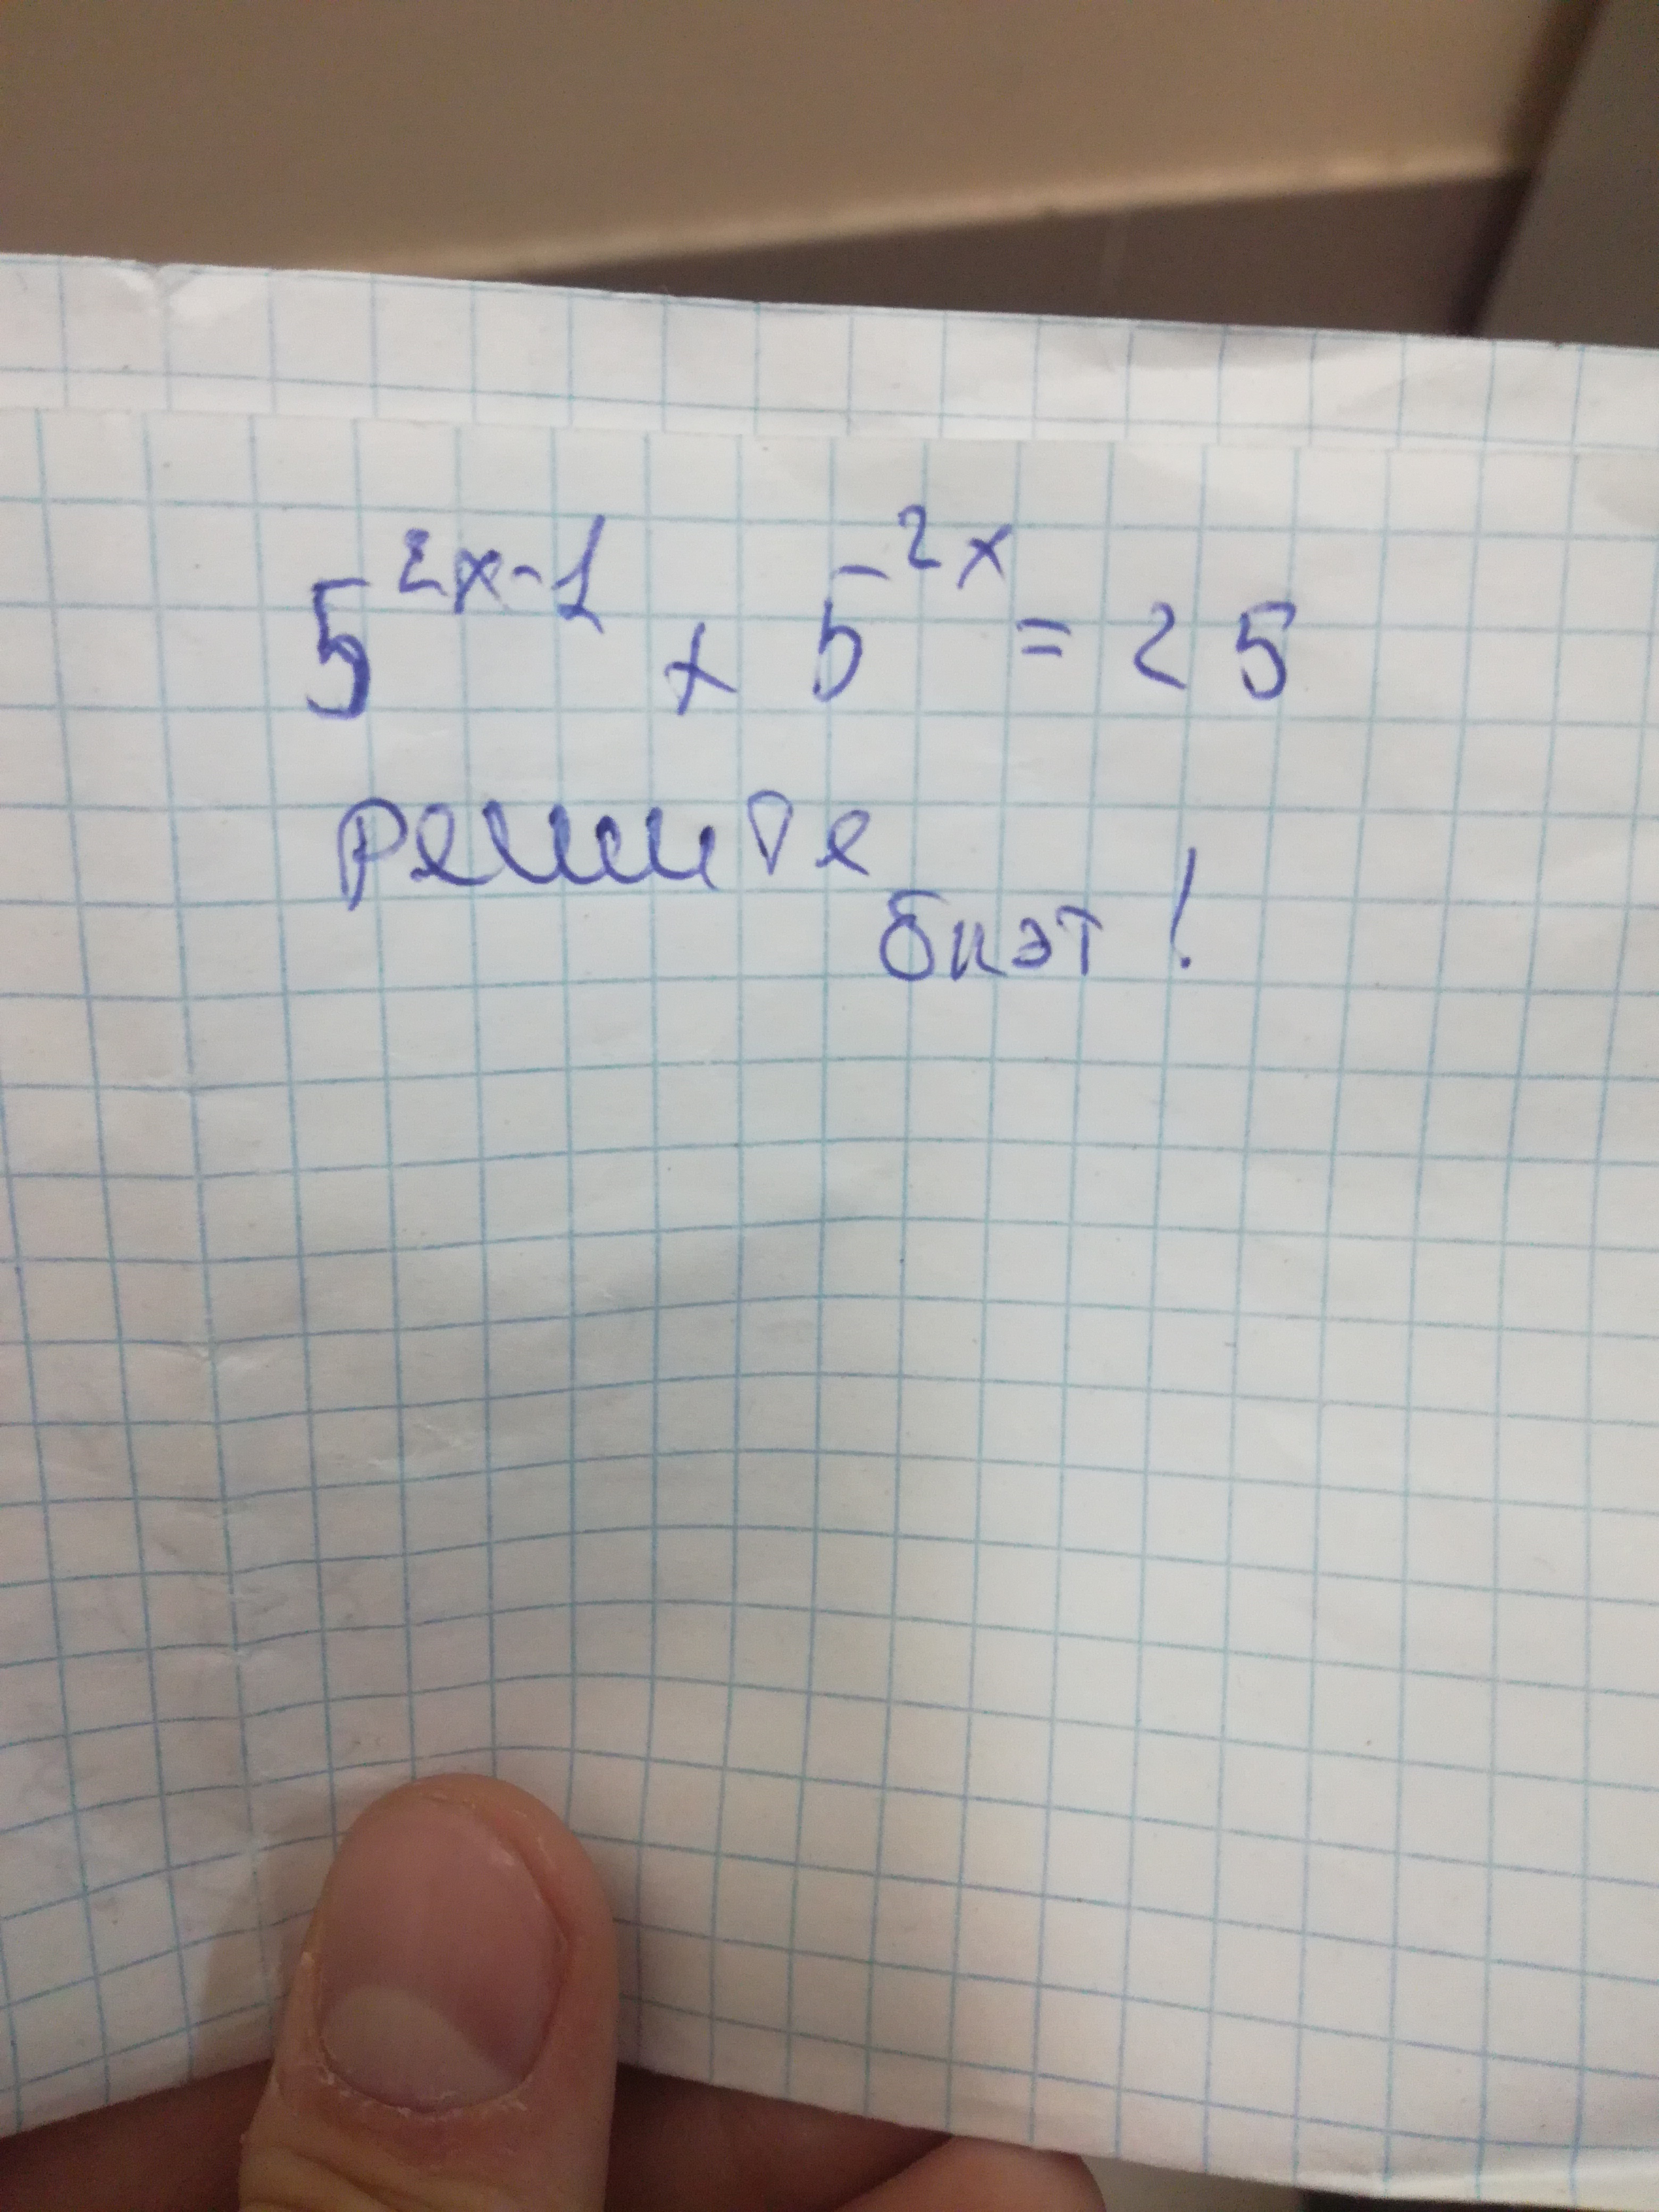 5^{2x-1} + 5^{2x} = 25
Решите
бкэт!